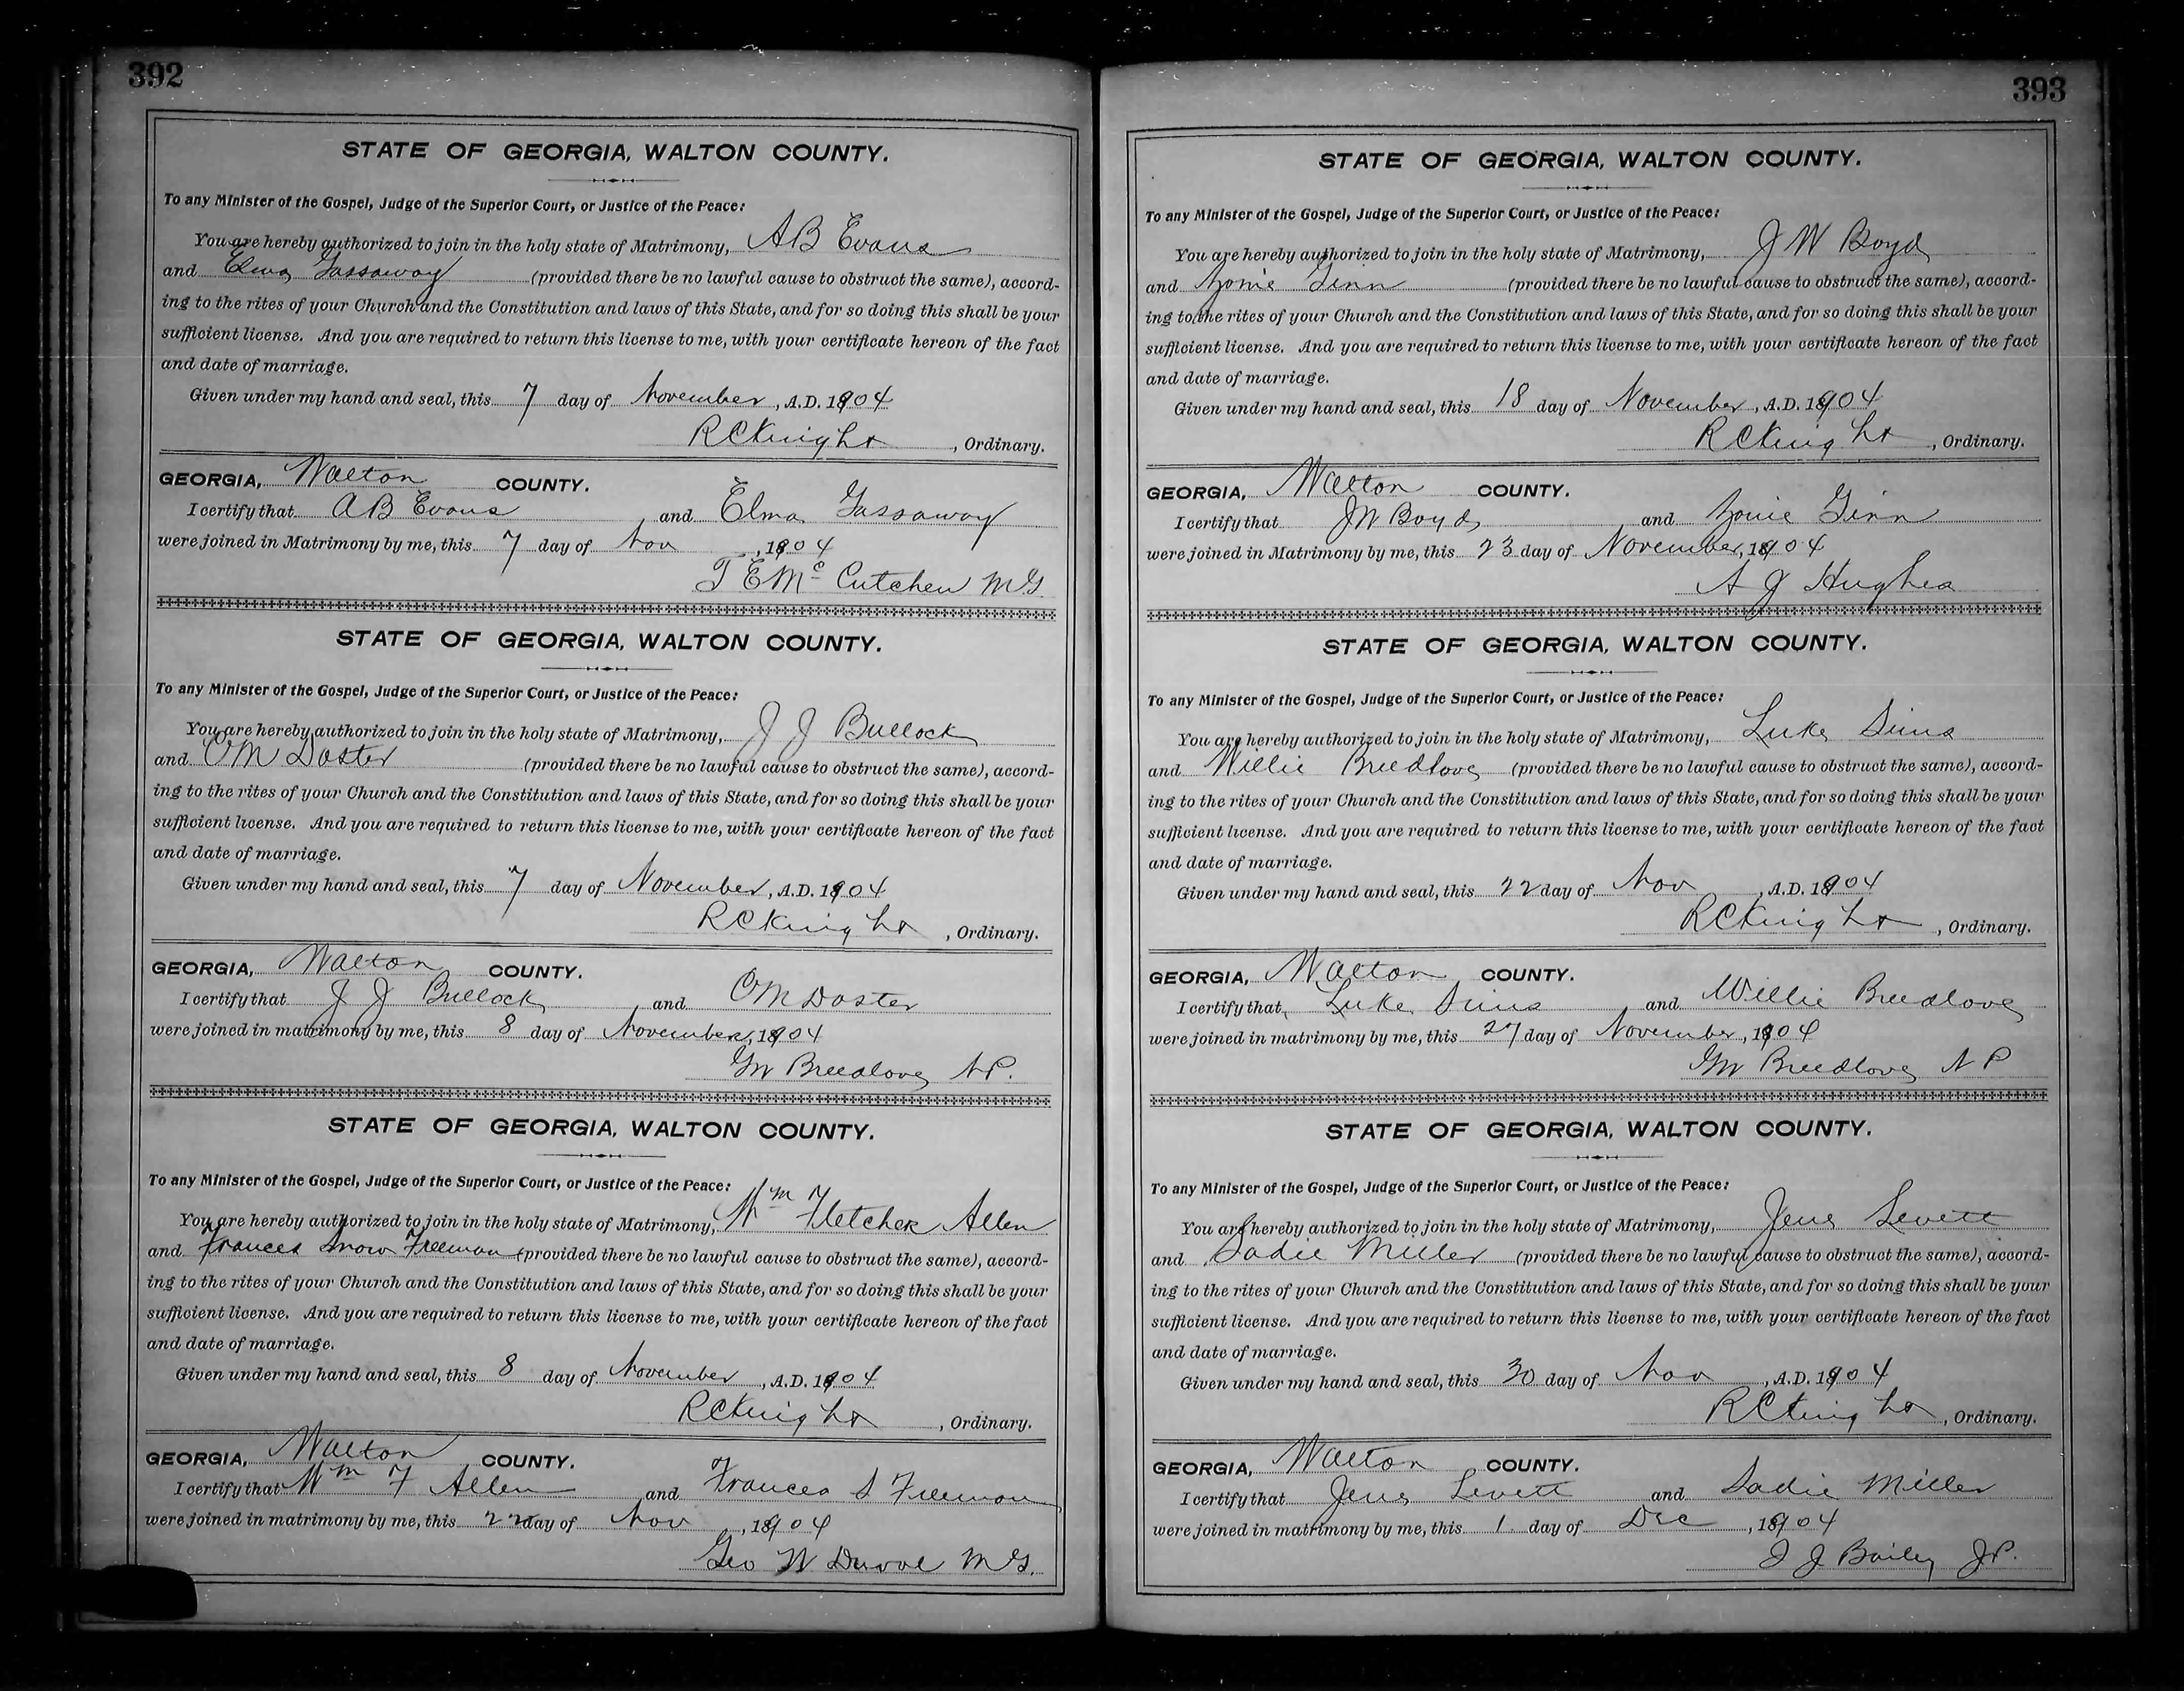 392
STATE OF GEORGIA, WALTON COUNTY.
To any Minister of the Gospel, Judge of the Superior Court, or Justice of the Peace:
You are hereby authorized to join in the holy state of Matrimony, A B Evans
and Elma Gassaway (provided there be no lawful cause to obstruct the same), accord-
ing to the rites of your Church and the Constitution and laws of this State, and for so doing this shall be your
sufficient license. And you are required to return this license to me, with your certificate hereon of the fact
and date of marriage.
Given under my hand and seal, this 7 day of November, A.D. 1904
R C Knight, Ordinary.
GEORGIA, Walton COUNTY.
I certify that A B Evans and Elma Gassaway
were joined in Matrimony by me, this 7 day of Nov, 1904
T E Mc Cutchen M G.
STATE OF GEORGIA, WALTON COUNTY.
To any Minister of the Gospel, Judge of the Superior Court, or Justice of the Peace:
You are hereby authorized to join in the holy state of Matrimony, J J Bullock
and O M Doster (provided there be no lawful cause to obstruct the same), accord-
ing to the rites of your Church and the Constitution and laws of this State, and for so doing this shall be your
sufficient license. And you are required to return this license to me, with your certificate hereon of the fact
and date of marriage.
Given under my hand and seal, this 7 day of November, A.D. 1904
R C Knight, Ordinary.
GEORGIA, Walton COUNTY.
I certify that J J Bullock and O M Doster
were joined in matrimony by me, this 8 day of November, 1904
G W Breedlove N P.
STATE OF GEORGIA, WALTON COUNTY.
To any Minister of the Gospel, Judge of the Superior Court, or Justice of the Peace:
You are hereby authorized to join in the holy state of Matrimony, Wm Fletcher Allen
and Frances Snow Freeman (provided there be no lawful cause to obstruct the same), accord-
ing to the rites of your Church and the Constitution and laws of this State, and for so doing this shall be your
sufficient license. And you are required to return this license to me, with your certificate hereon of the fact
and date of marriage.
Given under my hand and seal, this 8 day of November, A.D. 1904
R C Knight, Ordinary.
GEORGIA, Walton COUNTY.
I certify that Wm F Allen and Frances S Freeman
were joined in matrimony by me, this 22 day of Nov, 1904
Geo W Duval M G.
393
STATE OF GEORGIA, WALTON COUNTY.
To any Minister of the Gospel, Judge of the Superior Court, or Justice of the Peace:
You are hereby authorized to join in the holy state of Matrimony, J W Boyd
and Zonie Ginn (provided there be no lawful cause to obstruct the same), accord-
ing to the rites of your Church and the Constitution and laws of this State, and for so doing this shall be your
sufficient license. And you are required to return this license to me, with your certificate hereon of the fact
and date of marriage.
Given under my hand and seal, this 18 day of November, A.D. 1904
R C Knight, Ordinary.
GEORGIA, Walton COUNTY.
I certify that J W Boyd and Zonie Ginn
were joined in Matrimony by me, this 23 day of November, 1904
A J Hughes
STATE OF GEORGIA, WALTON COUNTY.
To any Minister of the Gospel, Judge of the Superior Court, or Justice of the Peace:
You are hereby authorized to join in the holy state of Matrimony, Luke Sims
and Willie Breedlove (provided there be no lawful cause to obstruct the same), accord-
ing to the rites of your Church and the Constitution and laws of this State, and for so doing this shall be your
sufficient license. And you are required to return this license to me, with your certificate hereon of the fact
and date of marriage.
Given under my hand and seal, this 22 day of Nov, A.D. 1904
R C Knight, Ordinary.
GEORGIA, Walton COUNTY.
I certify that Luke Sims and Willie Breedlove
were joined in matrimony by me, this 27 day of November, 1904
G W Breedlove N P
STATE OF GEORGIA, WALTON COUNTY.
To any Minister of the Gospel, Judge of the Superior Court, or Justice of the Peace:
You are hereby authorized to join in the holy state of Matrimony, Levett
and Sadie Miller (provided there be no lawful cause to obstruct the same), accord-
ing to the rites of your Church and the Constitution and laws of this State, and for so doing this shall be your
sufficient license. And you are required to return this license to me, with your certificate hereon of the fact
and date of marriage.
Given under my hand and seal, this 30 day of Nov, A.D. 1904
R C Knight, Ordinary.
GEORGIA, Walton COUNTY.
I certify that Levett and Sadie Miller
were joined in matrimony by me, this 1 day of Dec, 1904
J J Bailey J P.